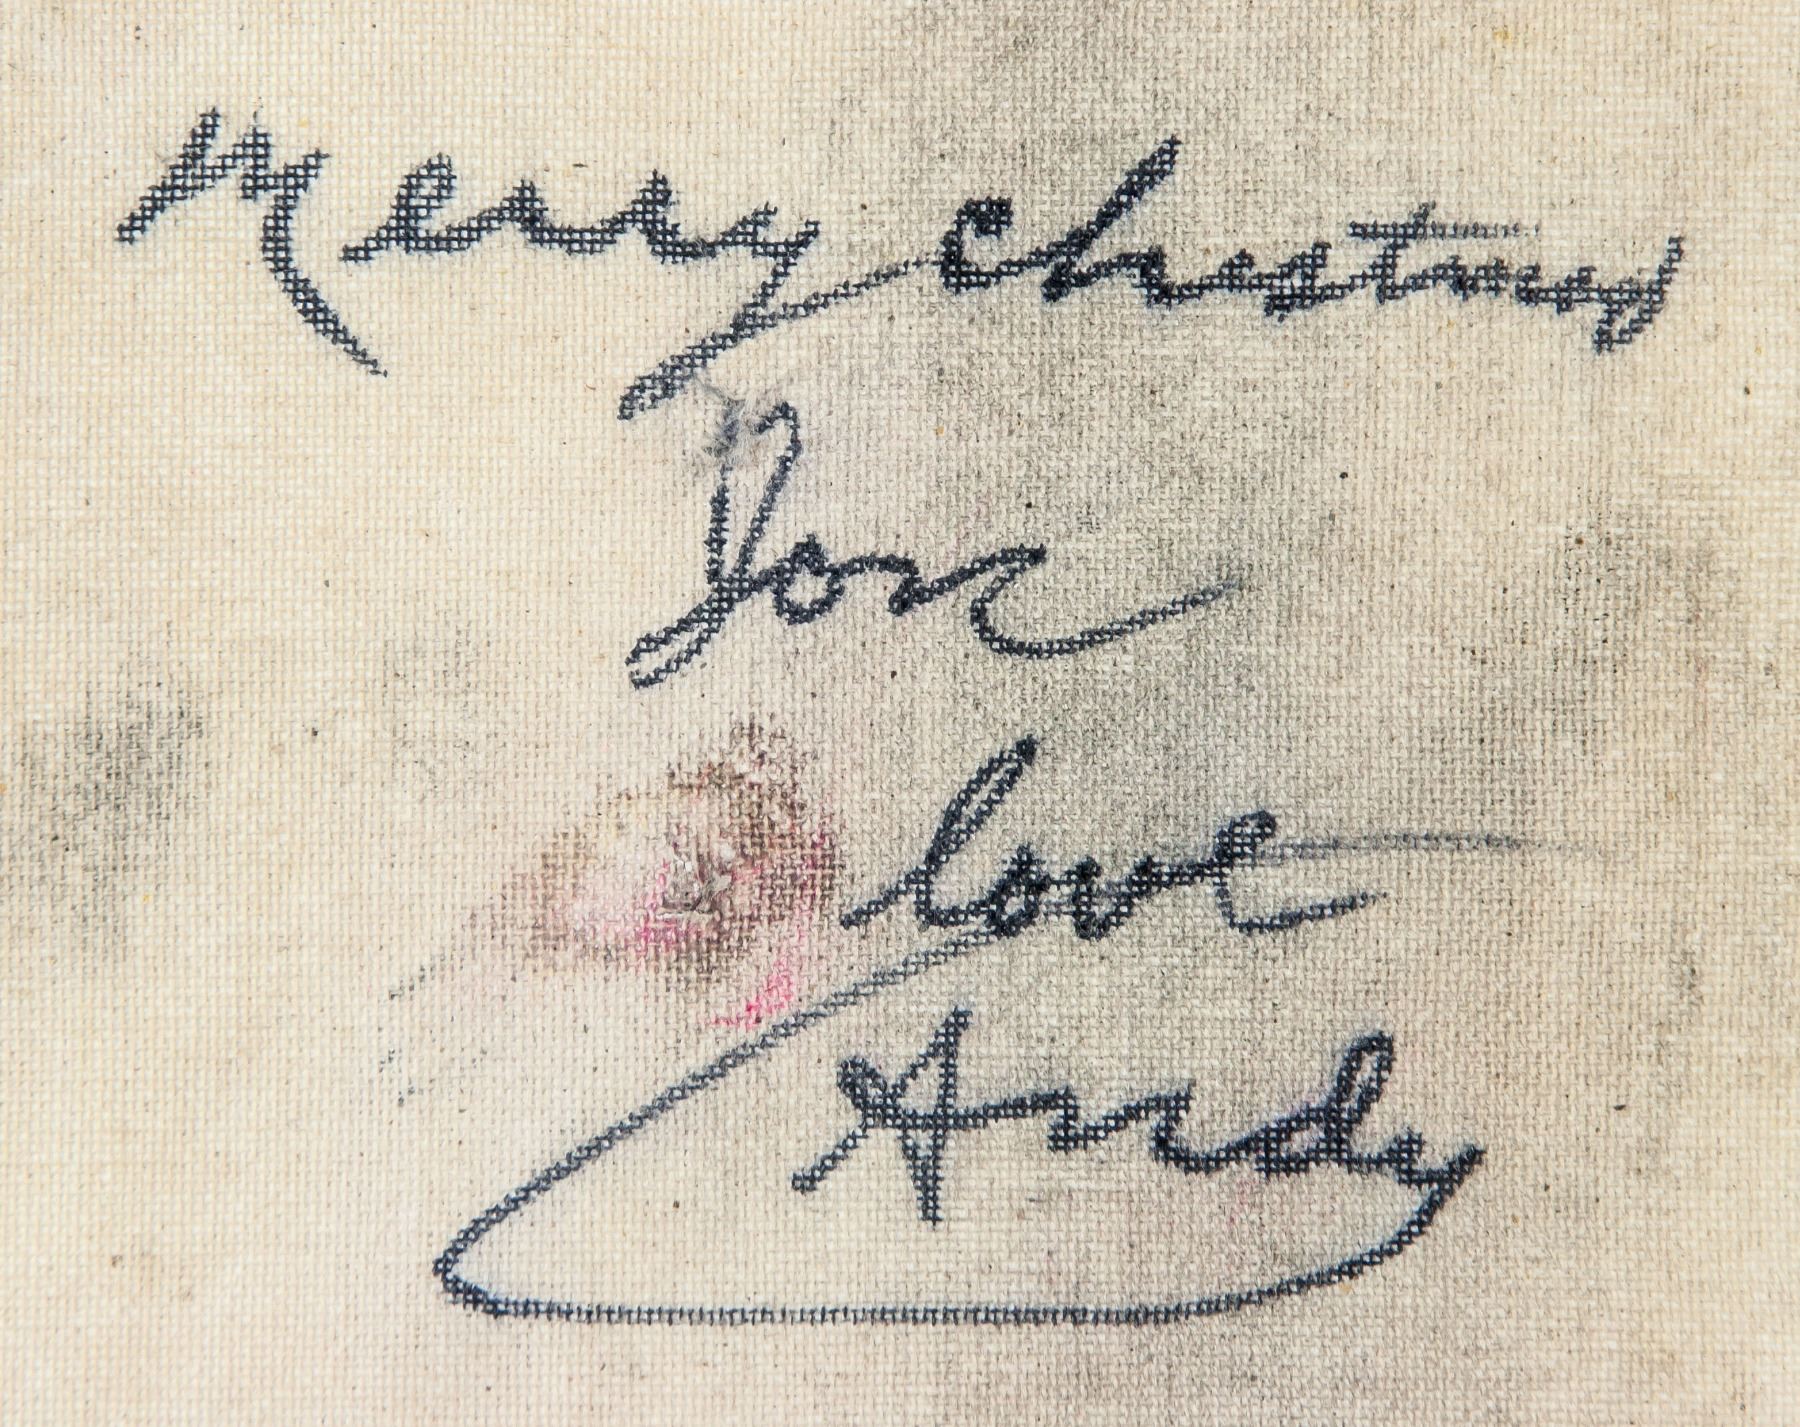 Merry christmas
Jon
love
Andy